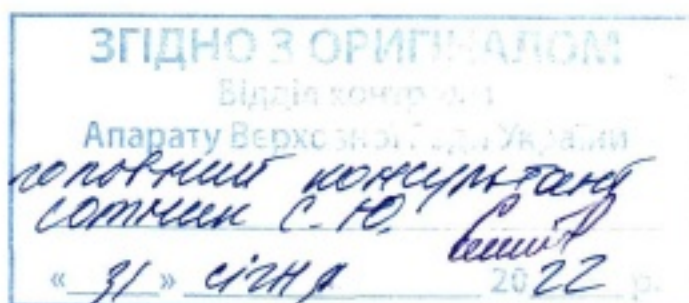 ЗГІДНО З ОРИГІНАЛОМ
Відділ контролю
Апарату Верховної Ради України
головний консультант
сотник С. Ю.
« 31 » січня 2022 р.